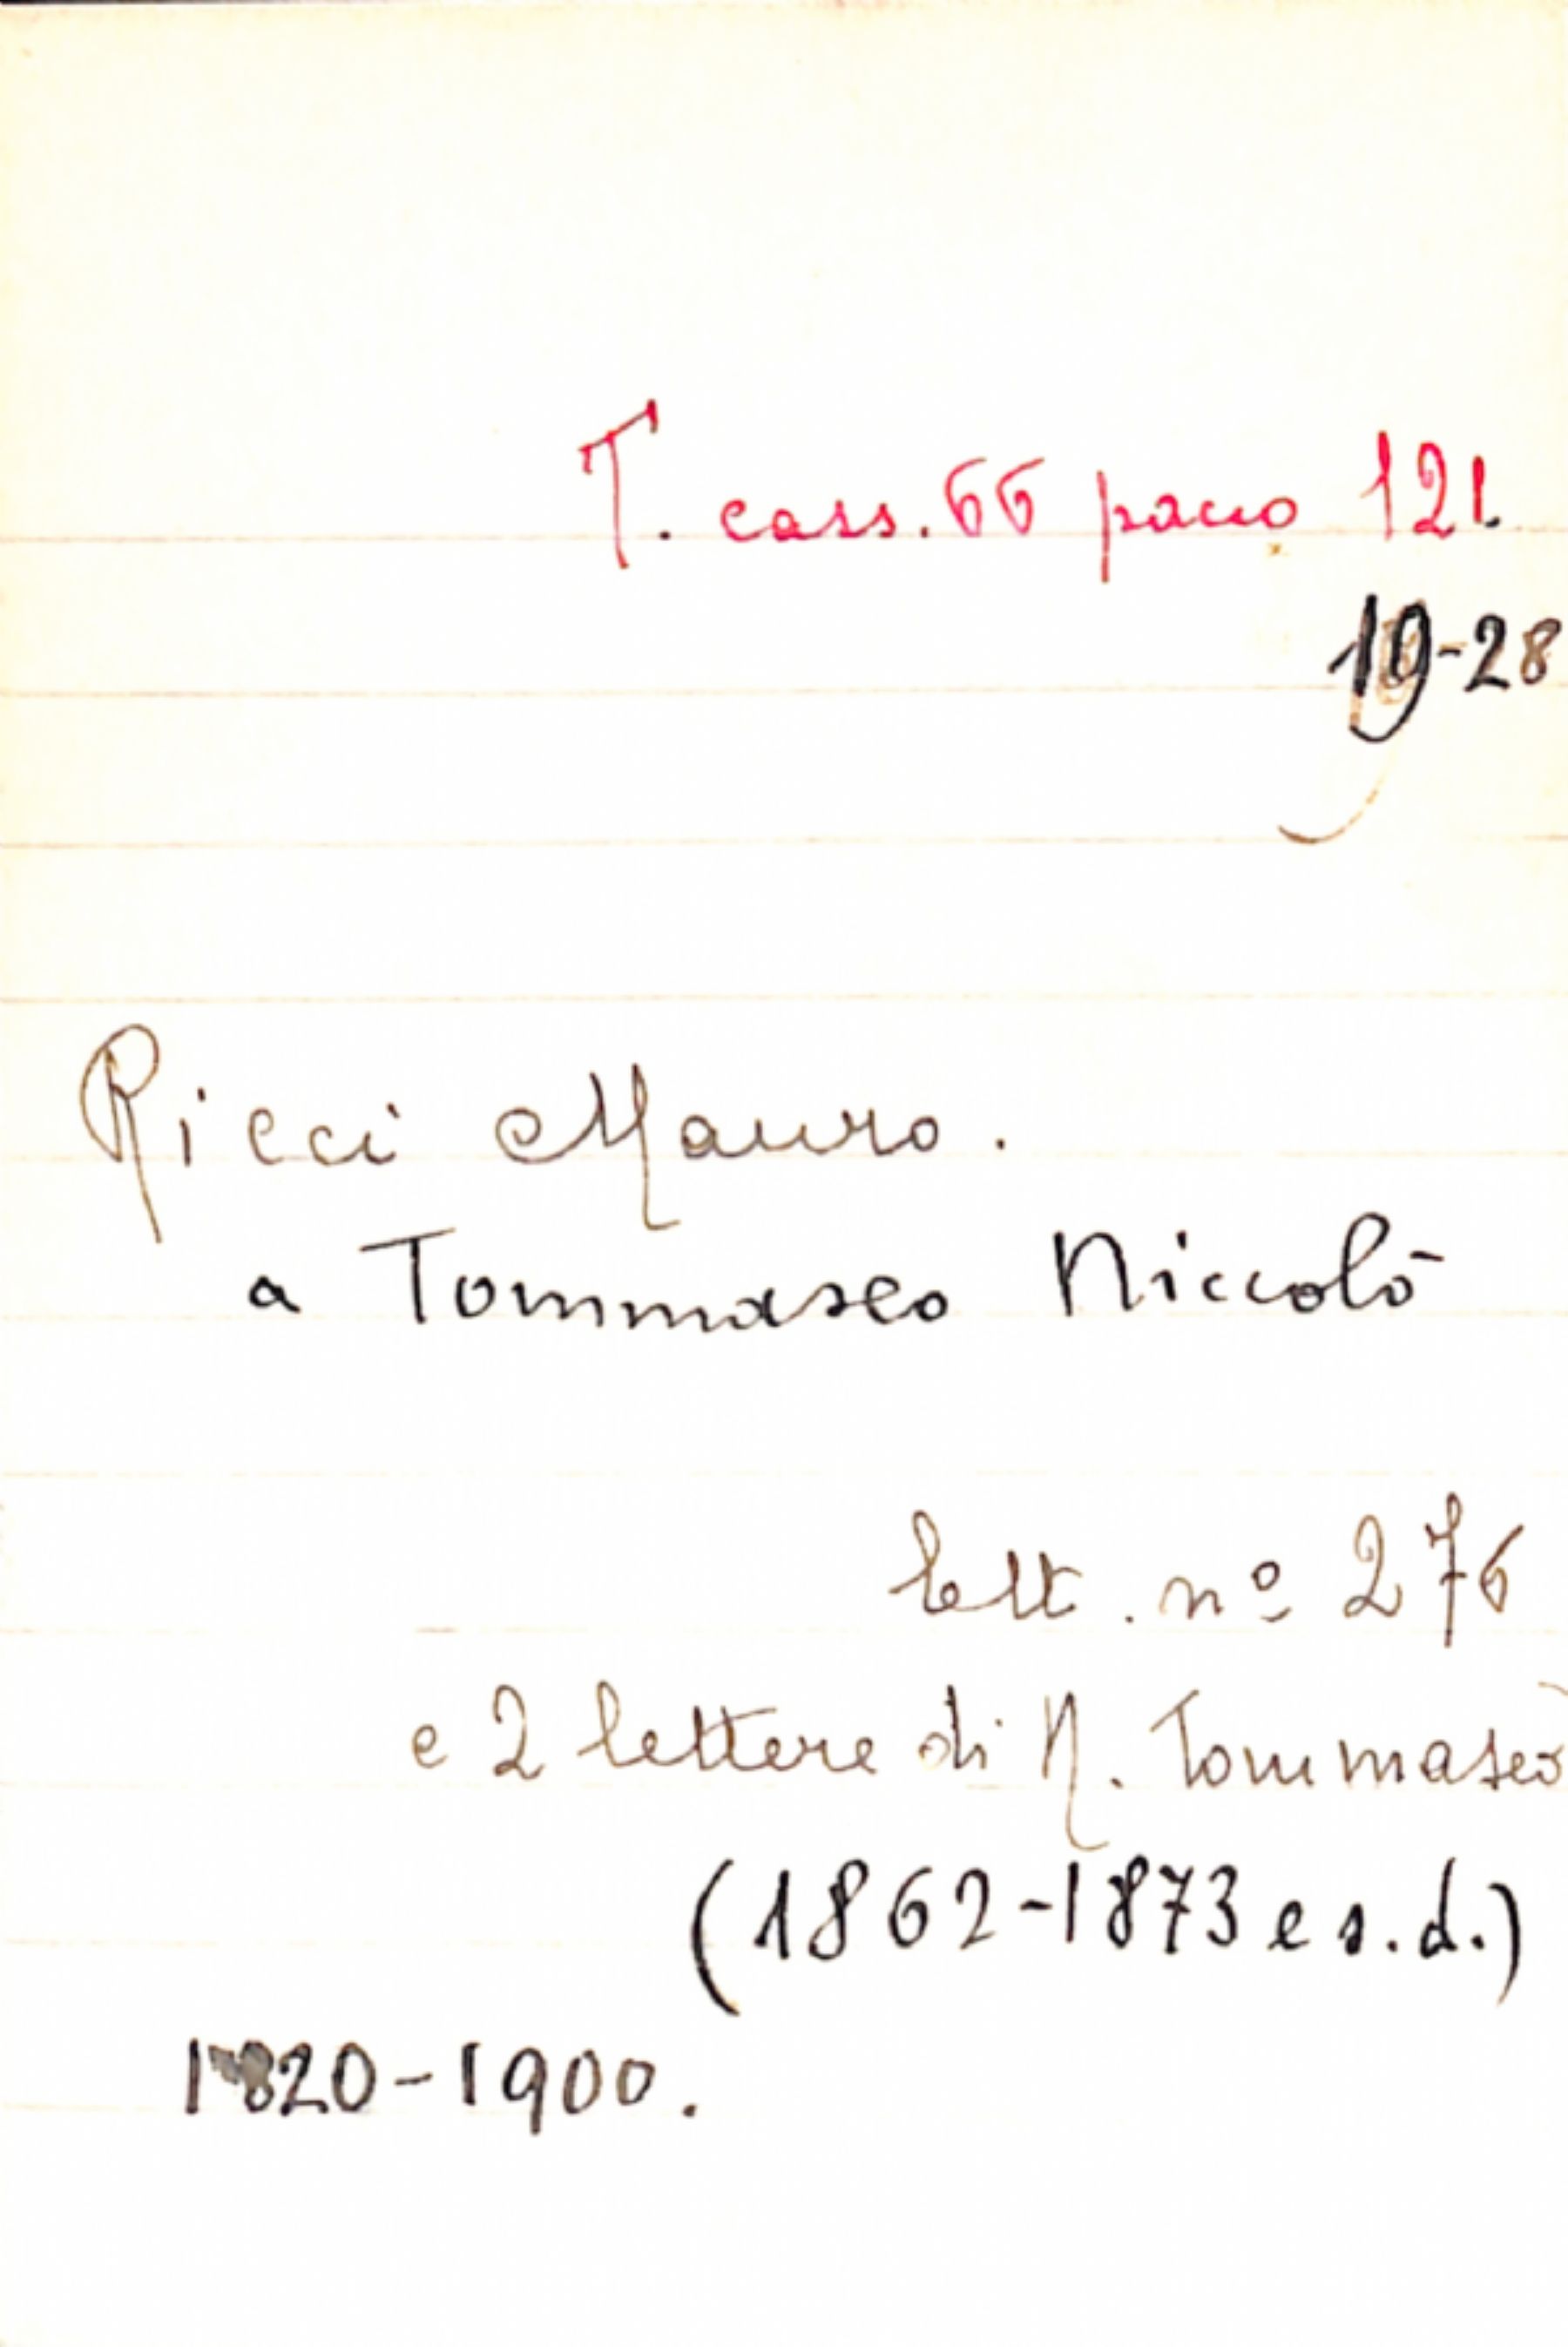 T. cass. 66 pacco 121.
19-28
Ricci Mauro.
a Tommaseo Niccolò
lett. nº 276
e 2 lettere di N. Tommaseo
(1862-1873 e s.d.)
1820-1900.